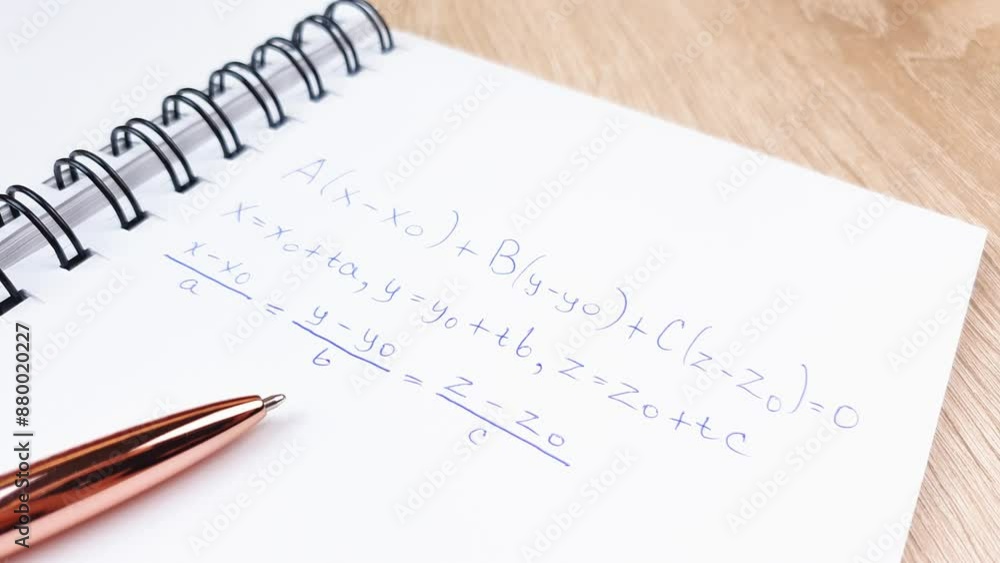 A(x-x₀)+B(y-y₀)+C(z-z₀)=0
x=x₀+ta, y=y₀+tb, z=z₀+tc
x-x₀/a = y-y₀/b = z-z₀/c
Adobe Stock | #880020227
Adobe Stock